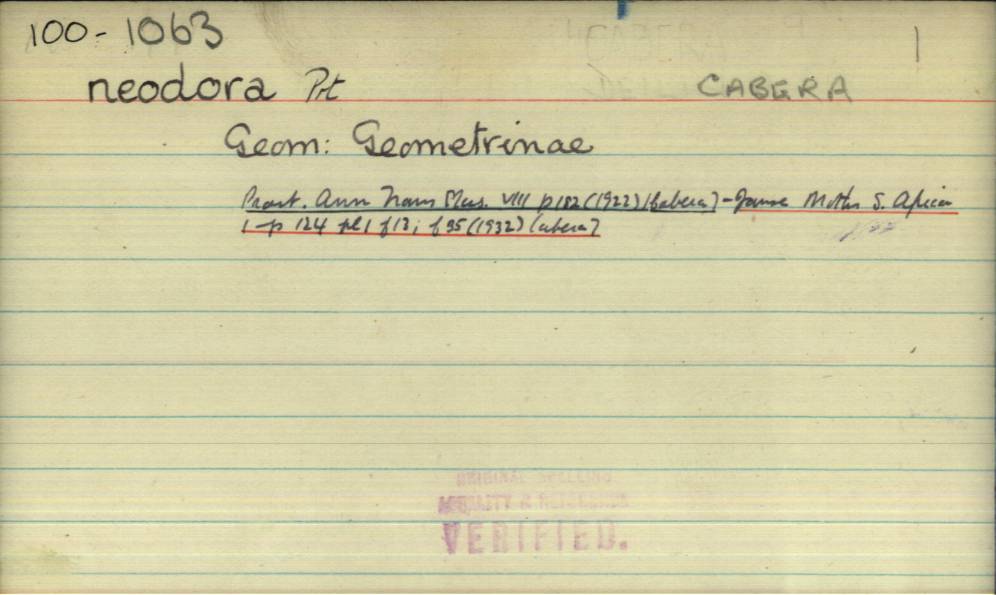 100-1063
1
neodora Prt
CABERA
Geom: Geometrinae
Prout. Ann Trans Mus. VIII p 182 (1922) [Cabera] - Janse Moths S. Africa
1 p 124 pl 1 f 13; f 95 (1932) [Cabera]
ORIGINAL SPELLING
VERIFIED.